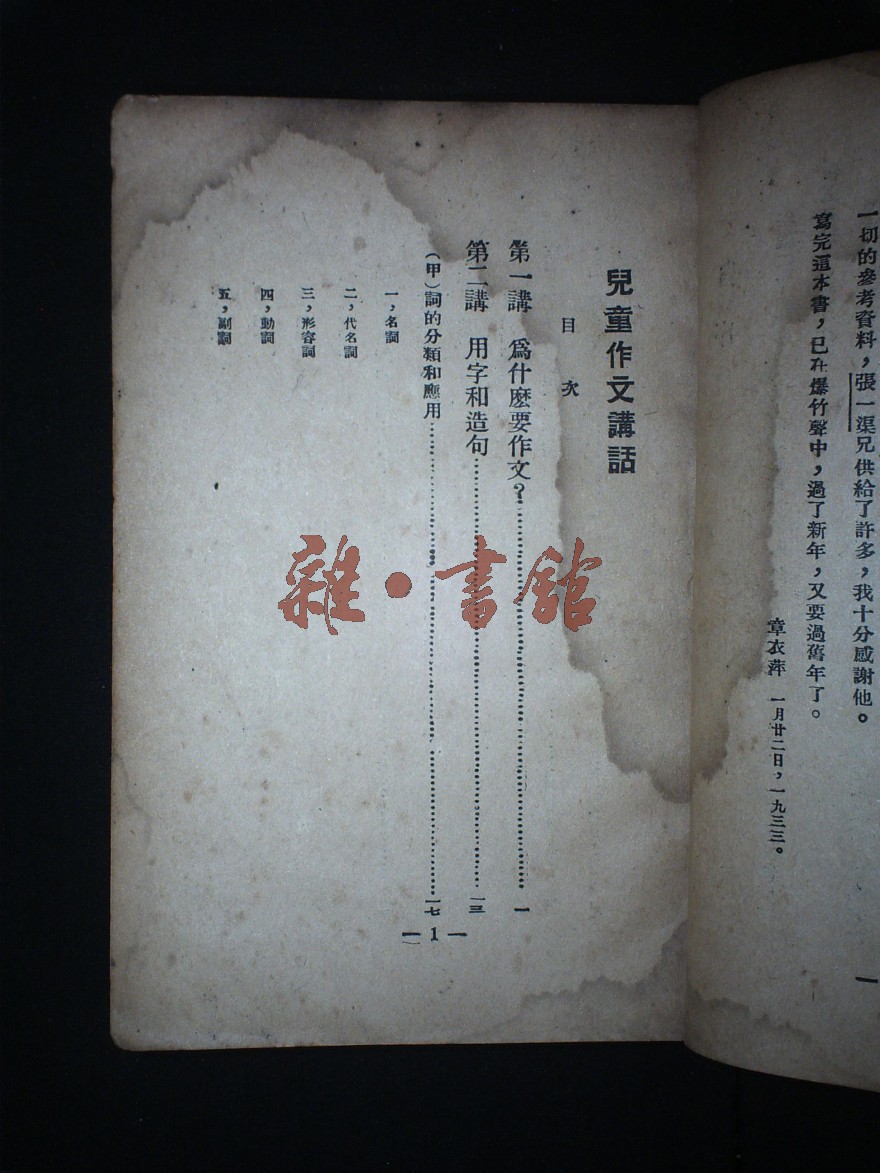 一切的參考資料，張一渠兄供給了許多，我十分感謝他。
寫完這本書，已在爆竹聲中，過了新年，又要過舊年了。
章衣萍 一月廿二日，一九三三。
一
兒童作文講話
目次
第一講 爲什麽要作文？……一
第二講 用字和造句……一三
（甲）詞的分類和應用……一七
一，名詞
二，代名詞
三，形容詞
四，動詞
五，副詞
— 1 —
雜·書舘